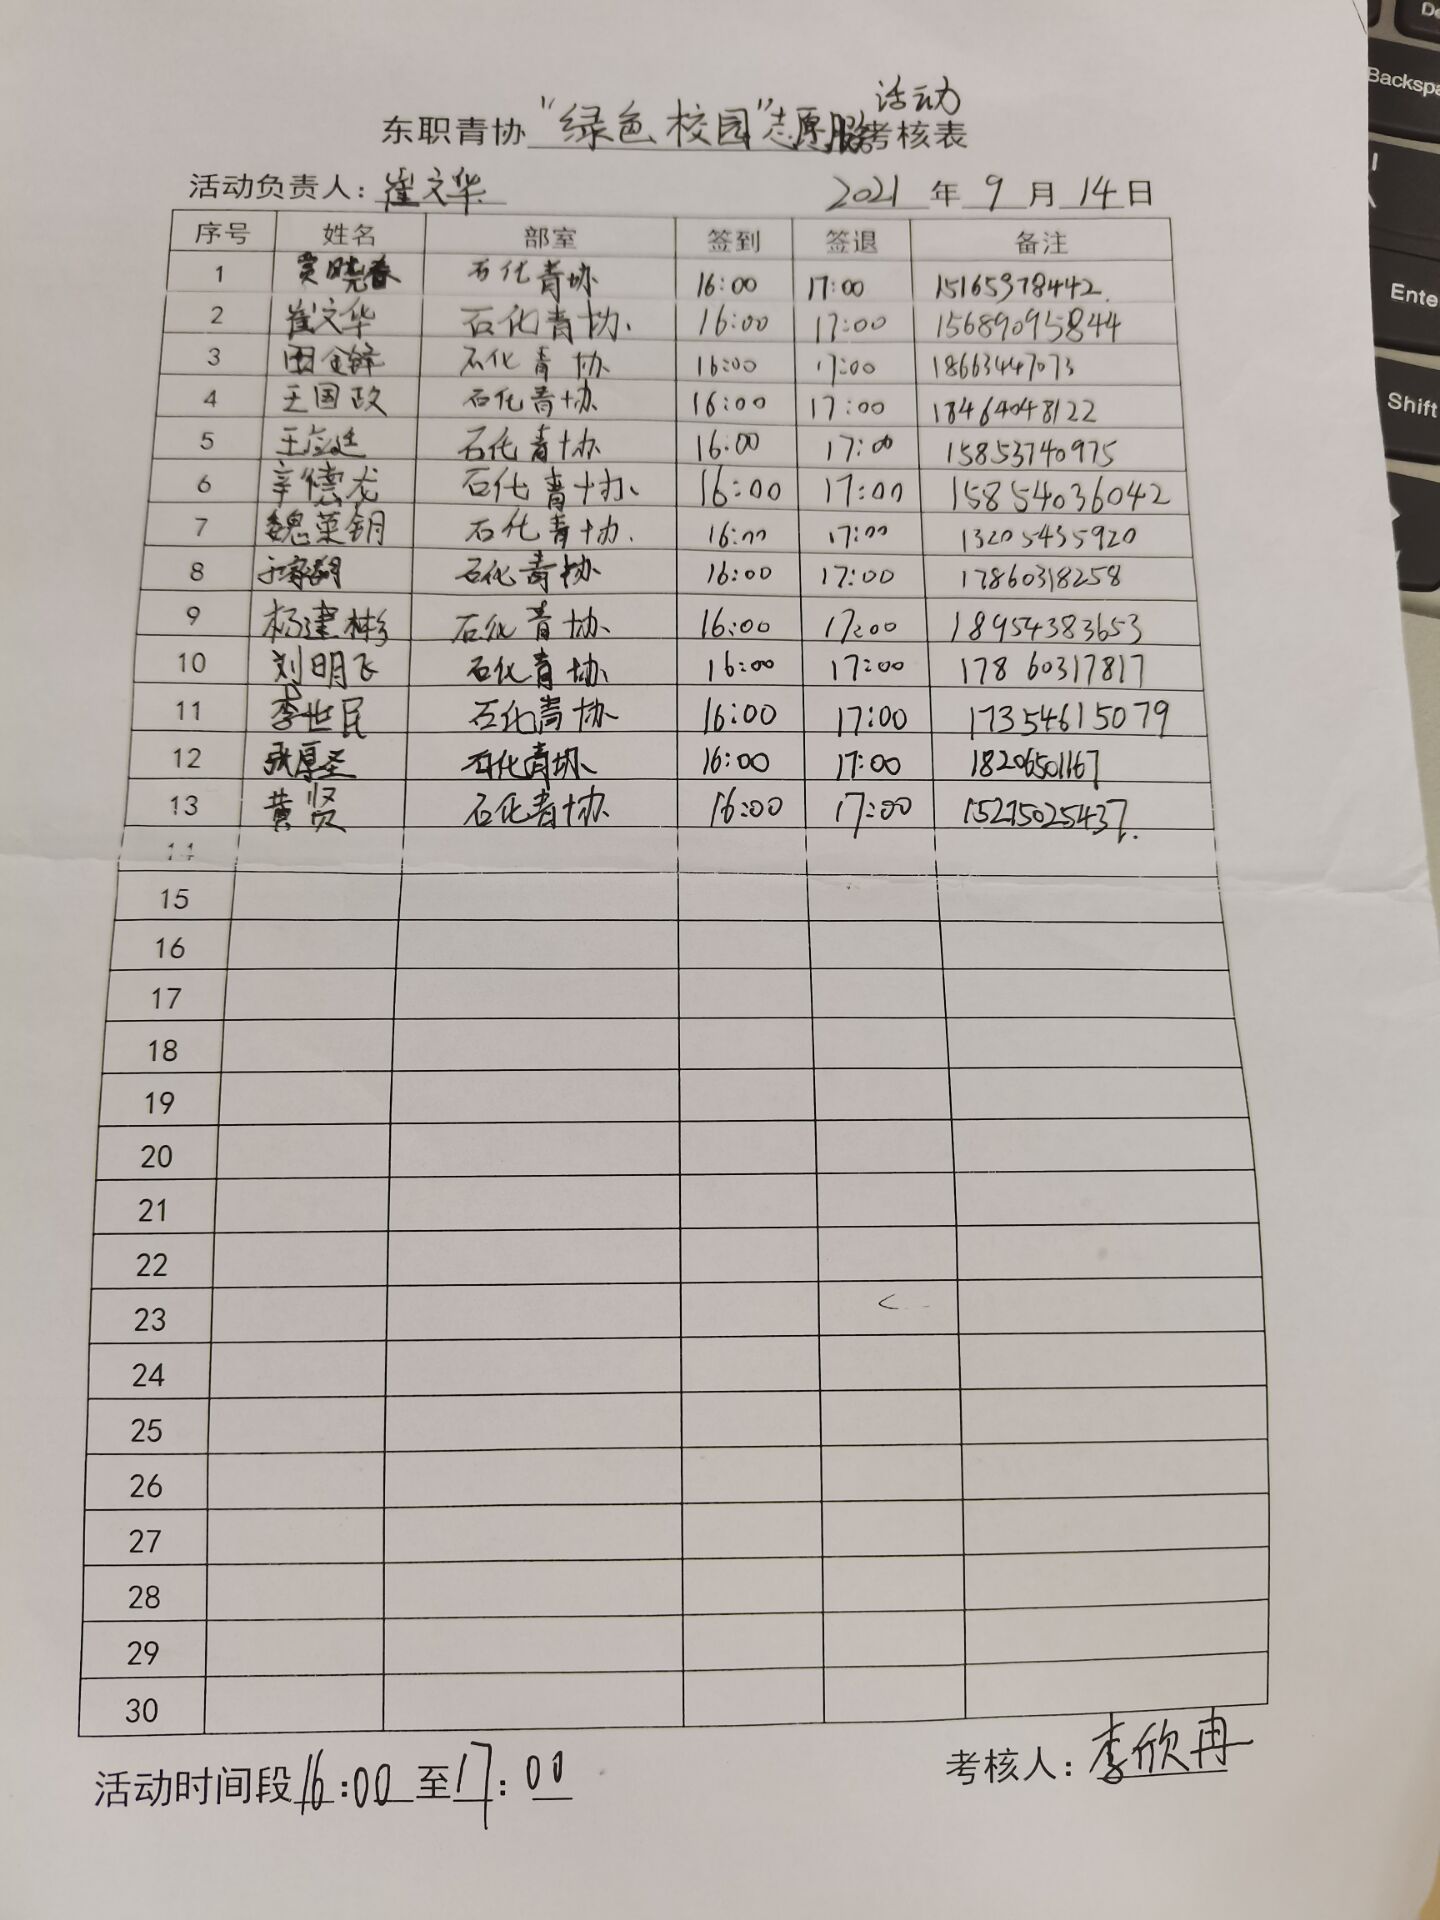 活动
东职青协"绿色校园"志愿服务考核表
活动负责人:崔文华 2021年9月14日
序号 姓名 部室 签到 签退 备注
1 贾晓春 石化青协 16:00 17:00 15165978442.
2 崔文华 石化青协、 16:00 17:00 15689095844
3 田金锋 石化青协 16:00 17:00 18663447073
4 王国政 石化青协 16:00 17:00 18464048122
5 石化青协 16:00 17:00 15853740975
6 辛德龙 石化青协、 16:00 17:00 15854036042
7 石化青协. 16:00 17:00 13205435920
8 石化青协 16:00 17:00 17860318258
9 杨建彬 石化青协、 16:00 17:00 18954383653
10 刘明飞 石化青协、 16:00 17:00 17860317817
11 李世民 石化青协 16:00 17:00 17354615079
12 张厚圣 石化青协、 16:00 17:00 18206501167
13 黄贤 石化青协 16:00 17:00 15215025437.
14
15
16
17
18
19
20
21
22
23
24
25
26
27
28
29
30
活动时间段16:00至17:00 考核人:李欣冉
Backspa
Ente
Shift